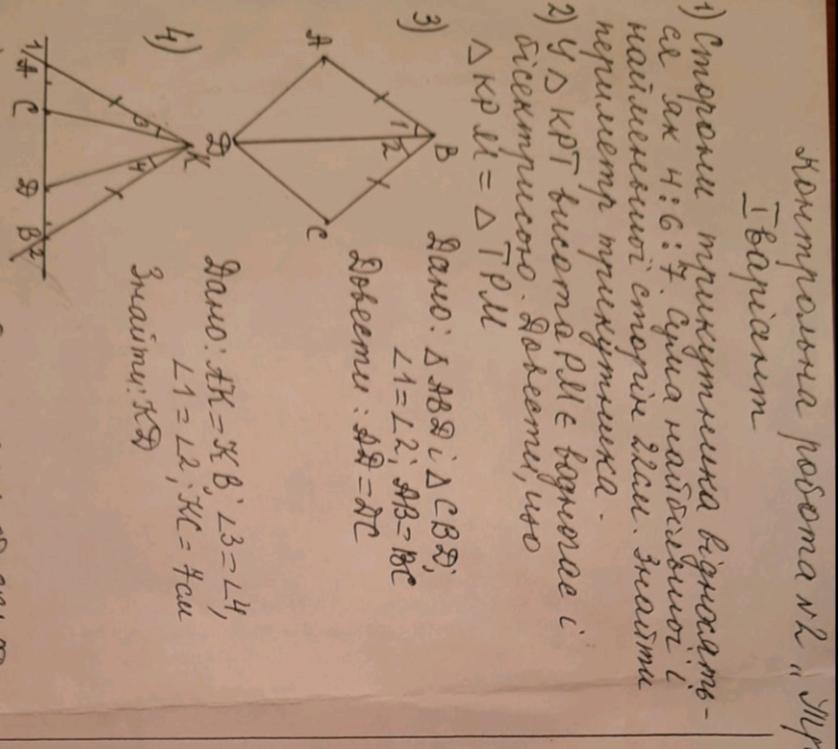 Контрольна робота №2 „Тр
I варіант
1) Сторони трикутника відносять-
ся як 4:6:7. Сума найбільшої і
найменшої сторін 22см. Знайти
периметр трикутника.
2) У △ КРТ висота РМ є водночас і
бісектрисою. Довести, що
△ КРМ = △ ТРМ
3)
A
B
1
2
D
C
Дано: △ ABD і △ CBD;
∠1=∠2; AB=BC
Довести: AD=DC
4)
K
3
4
1
A
C
D
B
2
Дано: AK=KB; ∠3=∠4,
∠1=∠2; KC=7см
Знайти: KD